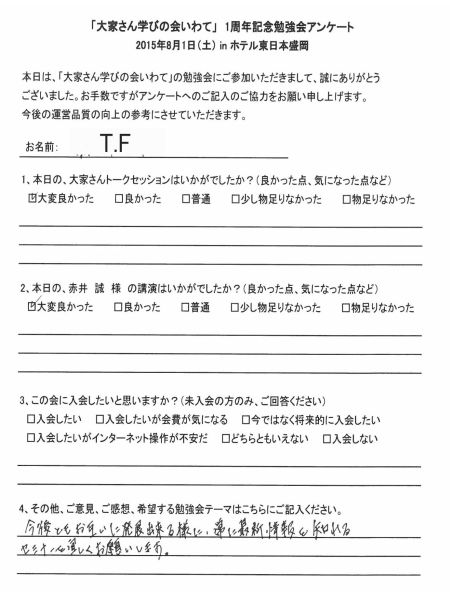 「大家さん学びの会いわて」 1周年記念勉強会アンケート
2015年8月1日(土) in ホテル東日本盛岡
本日は、「大家さん学びの会いわて」の勉強会にご参加いただきまして、誠にありがとう
ございました。お手数ですがアンケートへのご記入のご協力をお願い申し上げます。
今後の運営品質の向上の参考にさせていただきます。
お名前: T.F
1、本日の、大家さんトークセッションはいかがでしたか?(良かった点、気になった点など)
☑大変良かった □良かった □普通 □少し物足りなかった □物足りなかった
2、本日の、赤井 誠 様 の講演はいかがでしたか?(良かった点、気になった点など)
☑大変良かった □良かった □普通 □少し物足りなかった □物足りなかった
3、この会に入会したいと思いますか?(未入会の方のみ、ご回答ください)
□入会したい □入会したいが会費が気になる □今ではなく将来的に入会したい
□入会したいがインターネット操作が不安だ □どちらともいえない □入会しない
4、その他、ご意見、ご感想、希望する勉強会テーマはこちらにご記入ください。
今後ともお互いに発展出来る様に、常に最新情報を知れる
セミナーを宜しくお願いします。